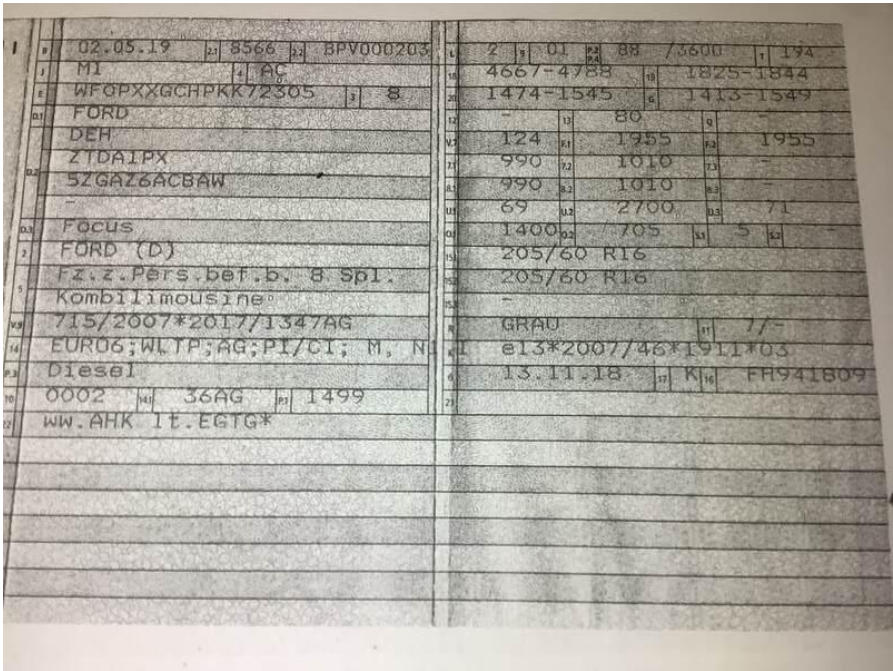 B 02.05.19 2.1 8566 2.2 BPV000203
J M1 4 AC
E WF0PXXGCHPKK72305 3 8
D.1 FORD
DEH
D.2 ZTDA1PX
5ZGAZ6ACBAW
-
D.3 Focus
2 FORD (D)
5 Fz.z.Pers.bef.b. 8 Spl.
Kombilimousine
V.9 715/2007*2017/1347AG
14 EURO6;WLTP;AG;PI/CI; M, N1 I
P.3 Diesel
10 0002 14.1 36AG P.1 1499
22 WW.AHK lt.EGTG*
L 2 9 01 P.2 P.4 88 /3600 T 194
18 4667-4788 19 1825-1844
20 1474-1545 G 1413-1549
12 - 13 80 Q -
V.7 124 F.1 1955 F.2 1955
7.1 990 7.2 1010 7.3 -
8.1 990 8.2 1010 8.3 -
U.1 69 U.2 2700 U.3 71
O.1 1400 O.2 705 S.1 5 S.2 -
15.1 205/60 R16
15.2 205/60 R16
15.3 -
R GRAU 11 7/-
K e13*2007/46*1911*03
6 13.11.18 17 K 16 FH941809
21